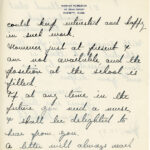 could keep interested and happy
in such work.
However just at present I
am not available and the
position at the school is
filled.
If at any time in the
future you need a nurse,
I shall be delighted to
hear from you.
A letter will always reach